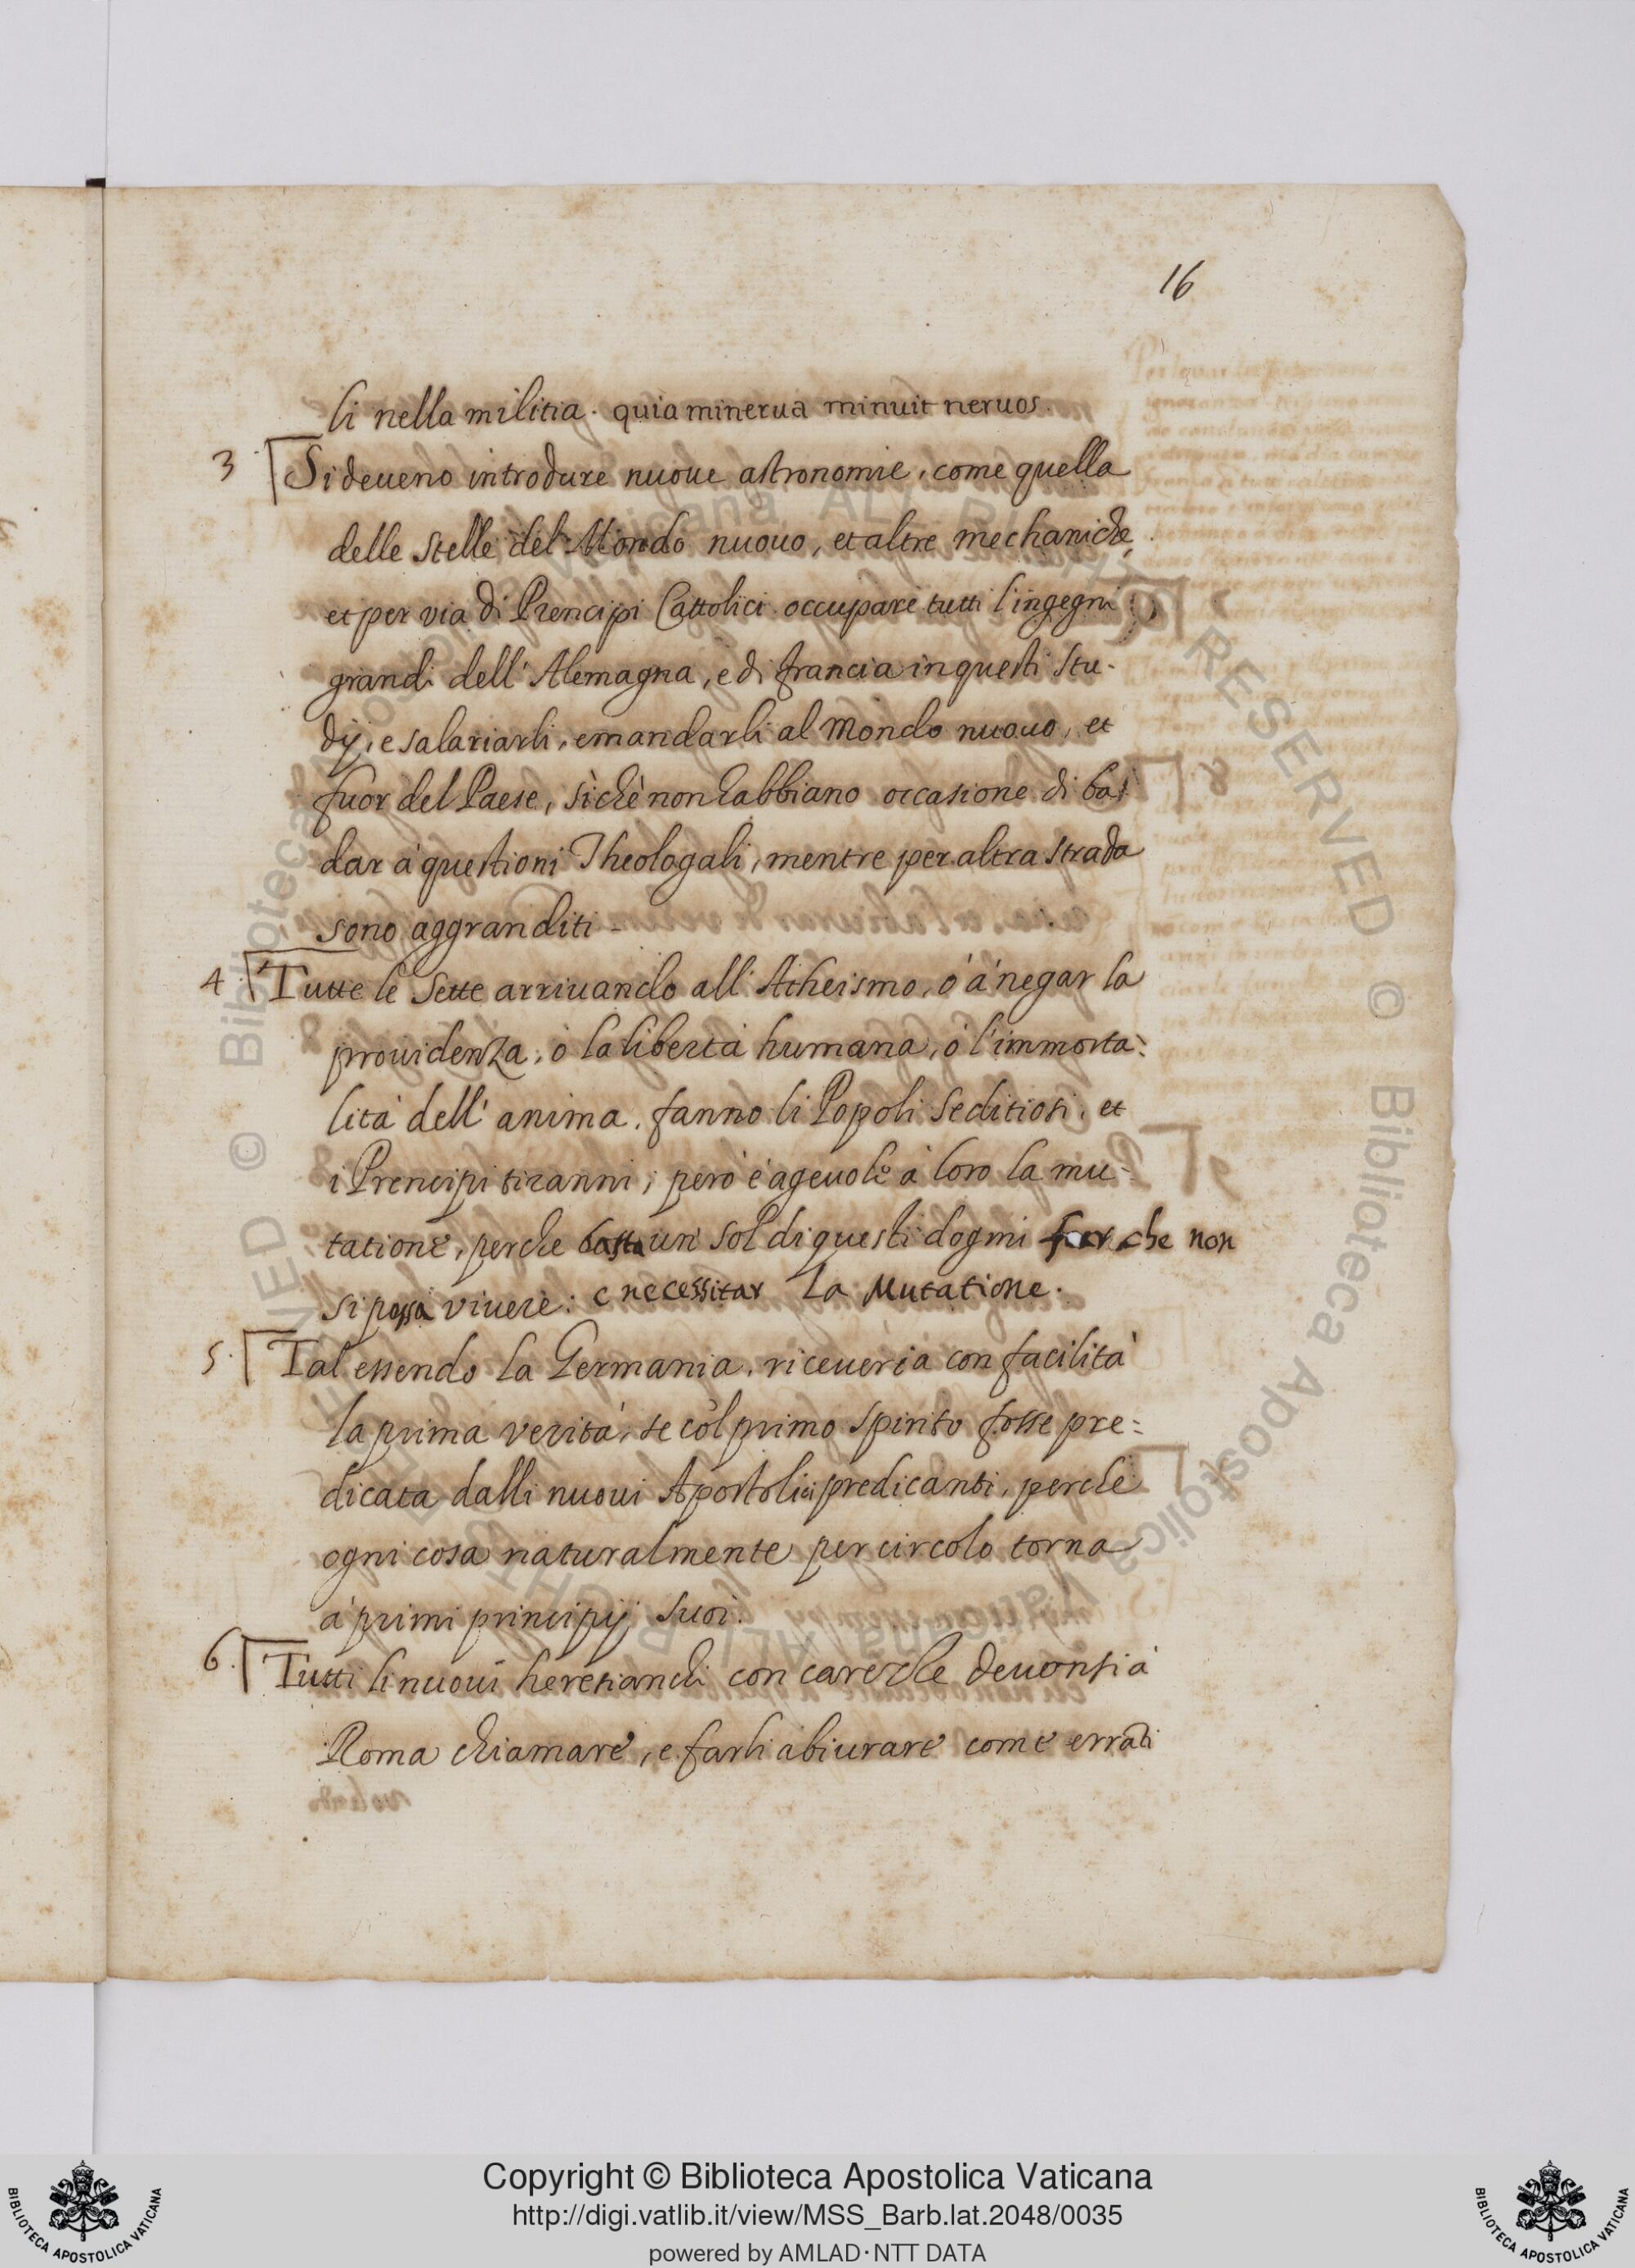 16
li nella militia. quia minerua minuit neruos.
3 Si deueno introdure nuoue astronomie, come quella
delle stelle del Mondo nuouo, et altre mechaniche,
et per via di Prencipi Cattolici occupare tutti l'ingegni
grandi dell'Alemagna, e di francia in questi stu-
dij, e salariarli, e mandarli al Mondo nuouo, et
fuor del Paese, sì chè non habbiano occasione di ba-
dar à questioni Theologali, mentre per altra strada
sono aggranditi-
4. Tutte le Sette arriuando all'Atheismo, ò à negar la
prouidenza, ò la libertà humana, ò l'immorta:
lità dell'anima, fanno li Popoli seditiosi, et
i Prencipi tiranni; però è ageuole à loro la mu-
tatione, perche basta un sol di questi dogmi far che non
si possa viuere: e necessitar La Mutatione.
5. Tal essendo la Germania, riceueria con facilità
la prima verità, se col primo spirito fosse pre:
dicata dalli nuoui Apostolici predicanti, perche
ogni cosa naturalmente per circolo torna
à primi principij suoi.
6. Tutti li nuoui heresiarchi con carezze deuonsi à
Roma chiamare, e farli abiurare come errati
Copyright © Biblioteca Apostolica Vaticana
http://digi.vatlib.it/view/MSS_Barb.lat.2048/0035
powered by AMLAD·NTT DATA
BIBLIOTECA APOSTOLICA VATICANA
BIBLIOTECA APOSTOLICA VATICANA